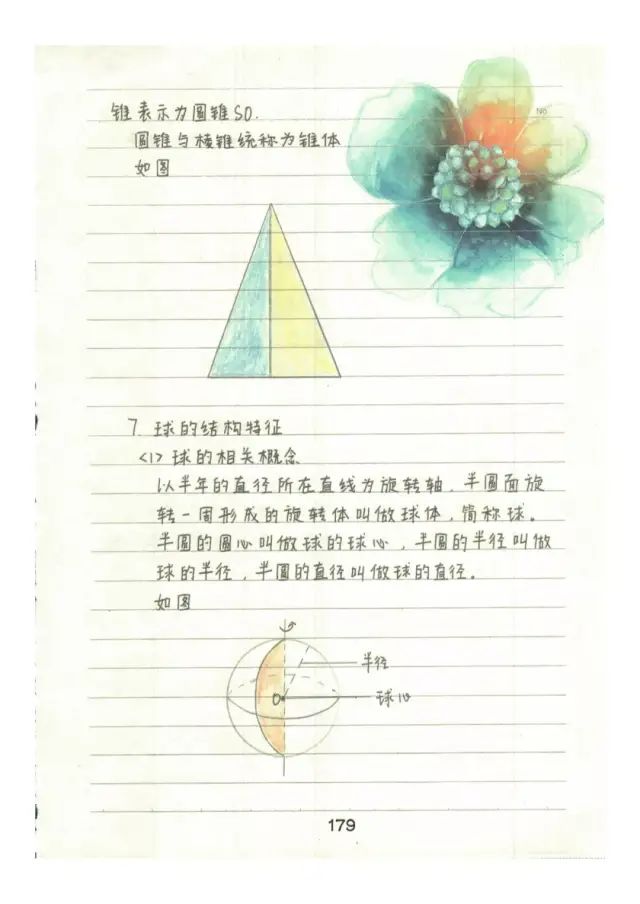 No
锥表示为圆锥SO.
圆锥与棱锥统称为锥体
如图
7. 球的结构特征
<1> 球的相关概念
以半年的直径所在直线为旋转轴，半圆面旋
转一周形成的旋转体叫做球体，简称球。
半圆的圆心叫做球的球心，半圆的半径叫做
球的半径，半圆的直径叫做球的直径。
如图
半径
O
球心
179